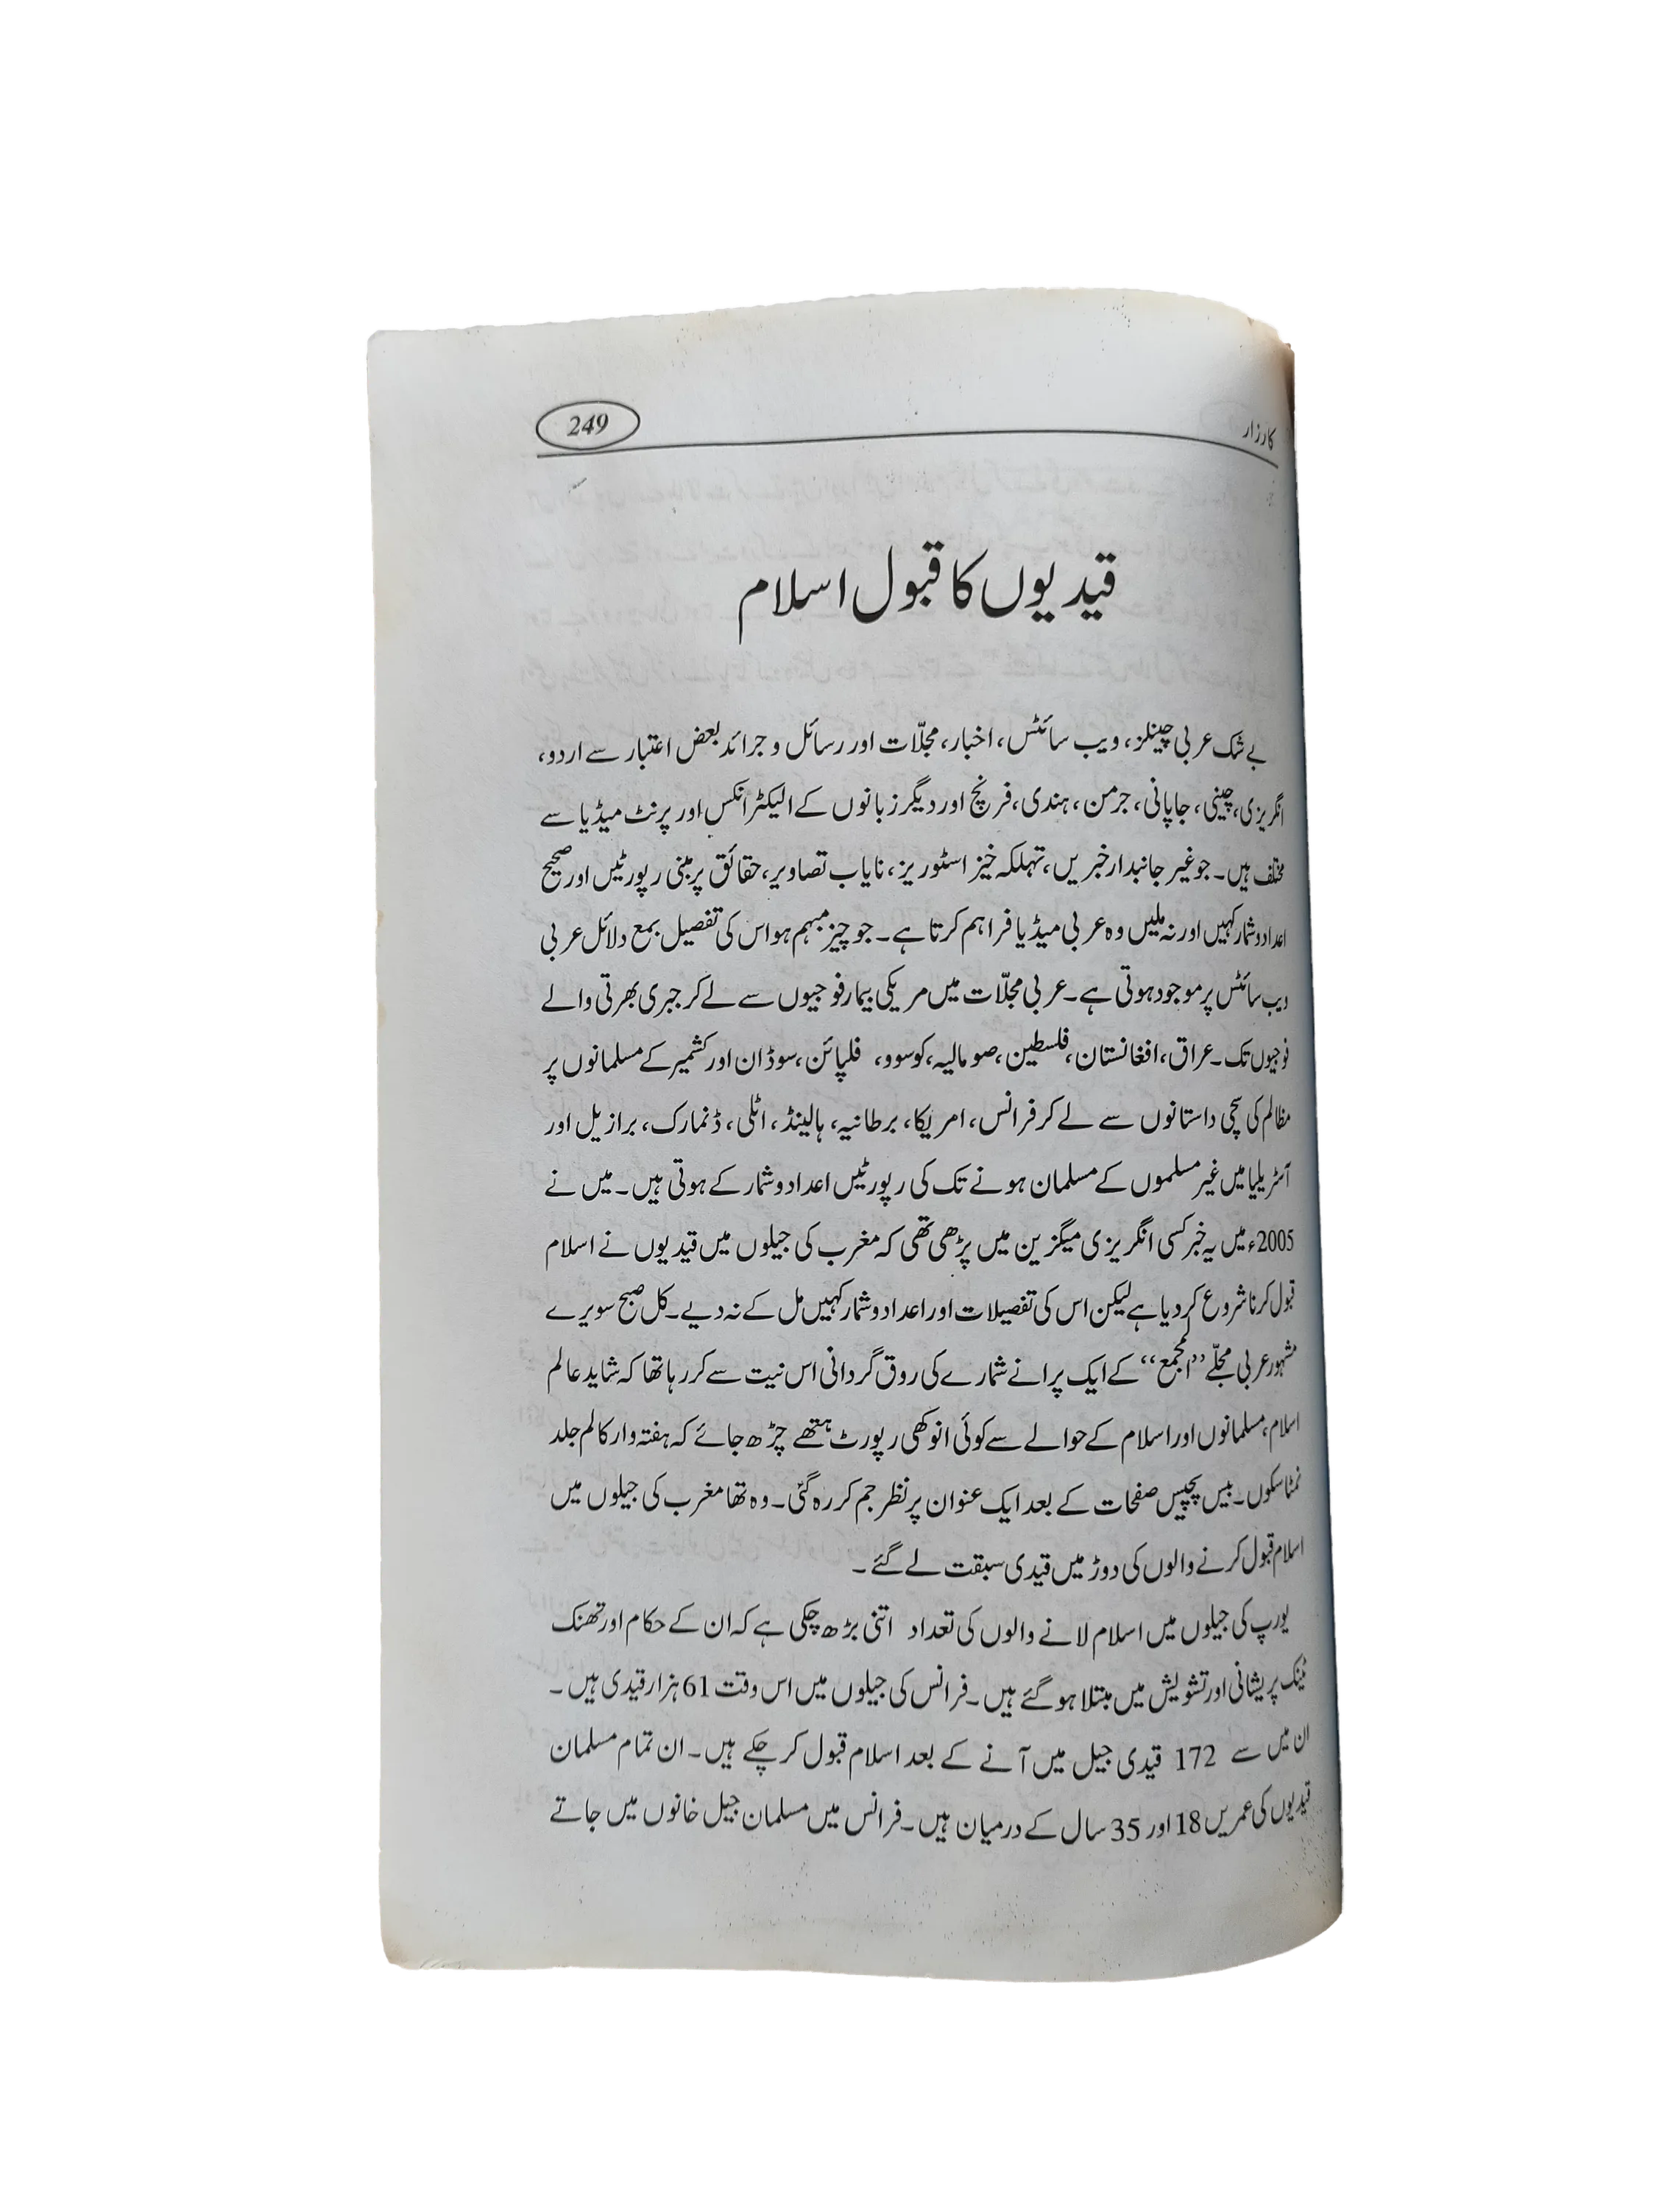 کارزار
249
قیدیوں کا قبول اسلام
بے شک عربی چینلز، ویب سائٹس، اخبار، مجلّات اور رسائل و جرائد بعض اعتبار سے اردو،
انگریزی، چینی، جاپانی، جرمن، ہندی، فرنچ اور دیگر زبانوں کے الیکٹرانکس اور پرنٹ میڈیا سے
مختلف ہیں۔ جو غیر جانبدار خبریں، تہلکہ خیز اسٹوریز، نایاب تصاویر، حقائق پر مبنی رپورٹیں اور صحیح
اعداد و شمار کہیں اور نہ ملیں وہ عربی میڈیا فراہم کرتا ہے۔ جو چیز مبہم ہو اس کی تفصیل بمع دلائل عربی
ویب سائٹس پر موجود ہوتی ہے۔ عربی مجلّات میں مریکی بیمار فوجیوں سے لے کر جبری بھرتی والے
فوجیوں تک۔ عراق، افغانستان، فلسطین، صومالیہ، کوسوو، فلپائن، سوڈان اور کشمیر کے مسلمانوں پر
مظالم کی سچی داستانوں سے لے کر فرانس، امریکا، برطانیہ، ہالینڈ، اٹلی، ڈنمارک، برازیل اور
آسٹریلیا میں غیر مسلموں کے مسلمان ہونے تک کی رپورٹیں اعداد و شمار کے ہوتی ہیں۔ میں نے
2005ء میں یہ خبر کسی انگریزی میگزین میں پڑھی تھی کہ مغرب کی جیلوں میں قیدیوں نے اسلام
قبول کرنا شروع کر دیا ہے لیکن اس کی تفصیلات اور اعداد و شمار کہیں مل کے نہ دیے۔ کل صبح سویرے
مشہور عربی مجلّے ’’المجمع‘‘ کے ایک پرانے شمارے کی روق گردانی اس نیت سے کر رہا تھا کہ شاید عالم
اسلام، مسلمانوں اور اسلام کے حوالے سے کوئی انوکھی رپورٹ ہتھے چڑھ جائے کہ ہفتہ وار کالم جلد
نمٹا سکوں۔ بیس پچیس صفحات کے بعد ایک عنوان پر نظر جم کر رہ گئی۔ وہ تھا مغرب کی جیلوں میں
اسلام قبول کرنے والوں کی دوڑ میں قیدی سبقت لے گئے۔
یورپ کی جیلوں میں اسلام لانے والوں کی تعداد اتنی بڑھ چکی ہے کہ ان کے حکام اور تھنک
ٹینک پریشانی اور تشویش میں مبتلا ہو گئے ہیں۔ فرانس کی جیلوں میں اس وقت 61 ہزار قیدی ہیں۔
ان میں سے 172 قیدی جیل میں آنے کے بعد اسلام قبول کر چکے ہیں۔ ان تمام مسلمان
قیدیوں کی عمریں 18 اور 35 سال کے درمیان ہیں۔ فرانس میں مسلمان جیل خانوں میں جاتے